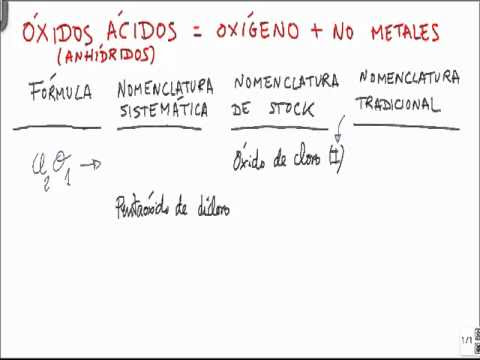 ÓXIDOS ÁCIDOS = OXÍGENO + NO METALES
(ANHÍDRIDOS)
FÓRMULA
NOMENCLATURA SISTEMÁTICA
NOMENCLATURA DE STOCK
NOMENCLATURA TRADICIONAL
Cl2O1 → Óxido de cloro (I)
Pentaóxido de dicloro
1/1